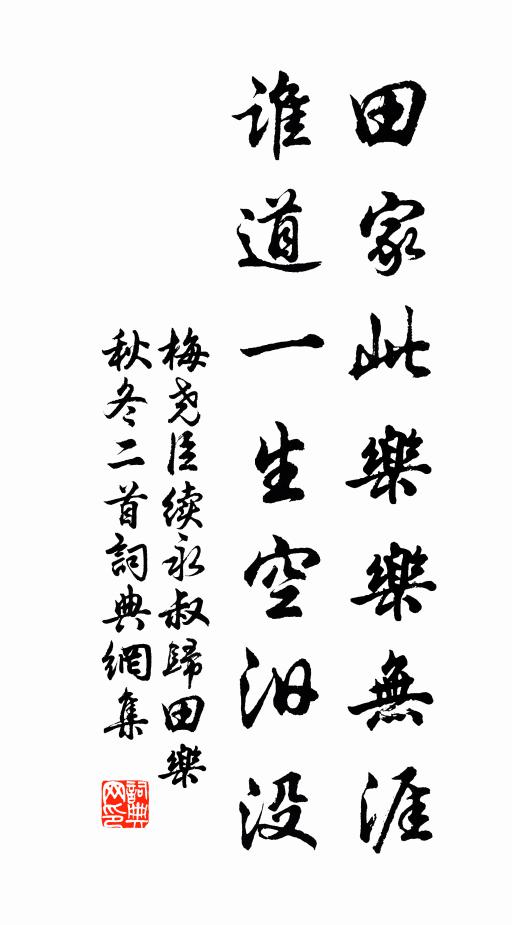 田家此樂樂無涯
誰道一生空汩没
梅尧臣續永叔歸田樂
秋冬二首詞典網集
詞典网印